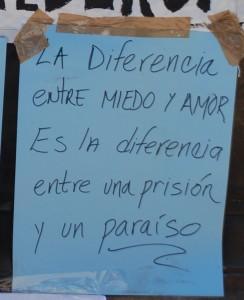 LA Diferencia
ENTRE MIEDO Y AMOR
Es lA diferencia
entre una prisión
y un paraíso